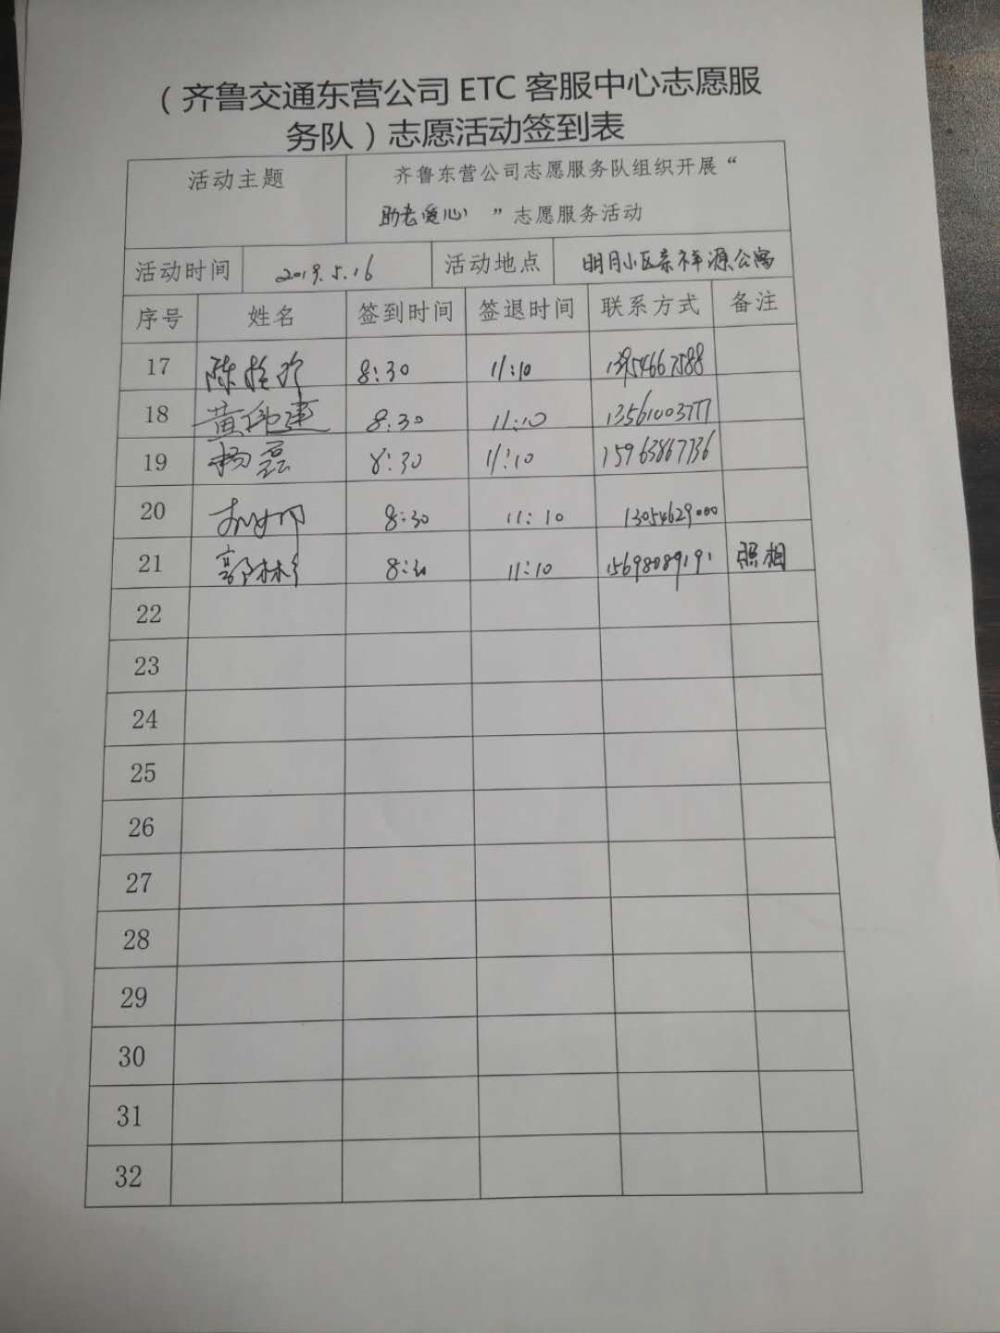 （齐鲁交通东营公司 ETC 客服中心志愿服
务队）志愿活动签到表
活动主题 齐鲁东营公司志愿服务队组织开展“
助老爱心 ”志愿服务活动
活动时间 2019.5.16 活动地点 明月小区 祥源公寓
序号 姓名 签到时间 签退时间 联系方式 备注
17 陈 8:30 11:10 13954667588
18 黄伟建 8:30 11:10 13561003777
19 杨磊 8:30 11:10 15963867736
20 8:30 11:10 13054629000
21 郭林彬 8:30 11:10 15698089191 照相
22
23
24
25
26
27
28
29
30
31
32